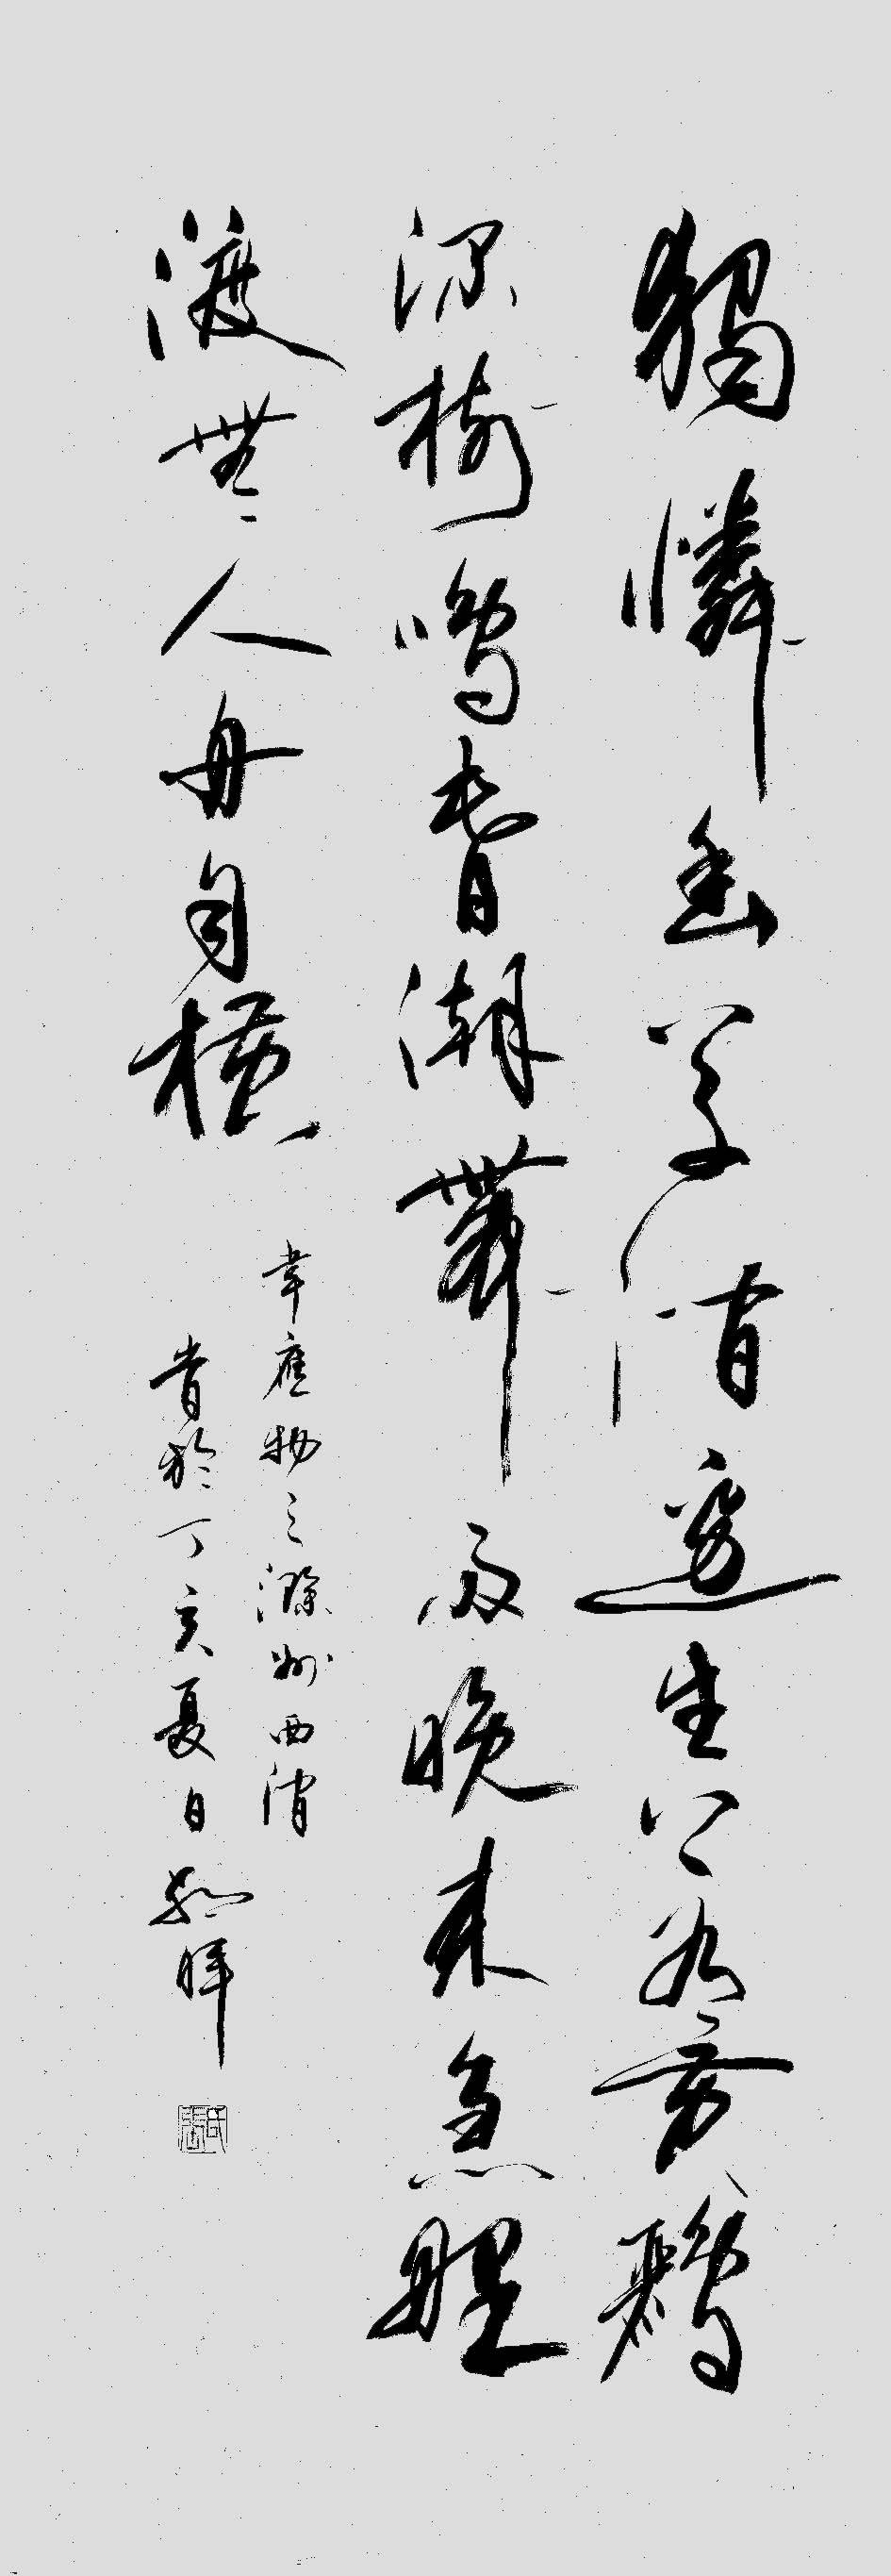 獨憐幽草澗邊生上有黃鸝
深樹鳴春潮帶雨晚來急野
渡無人舟自橫
韋應物之滁州西澗
書於丁亥夏日